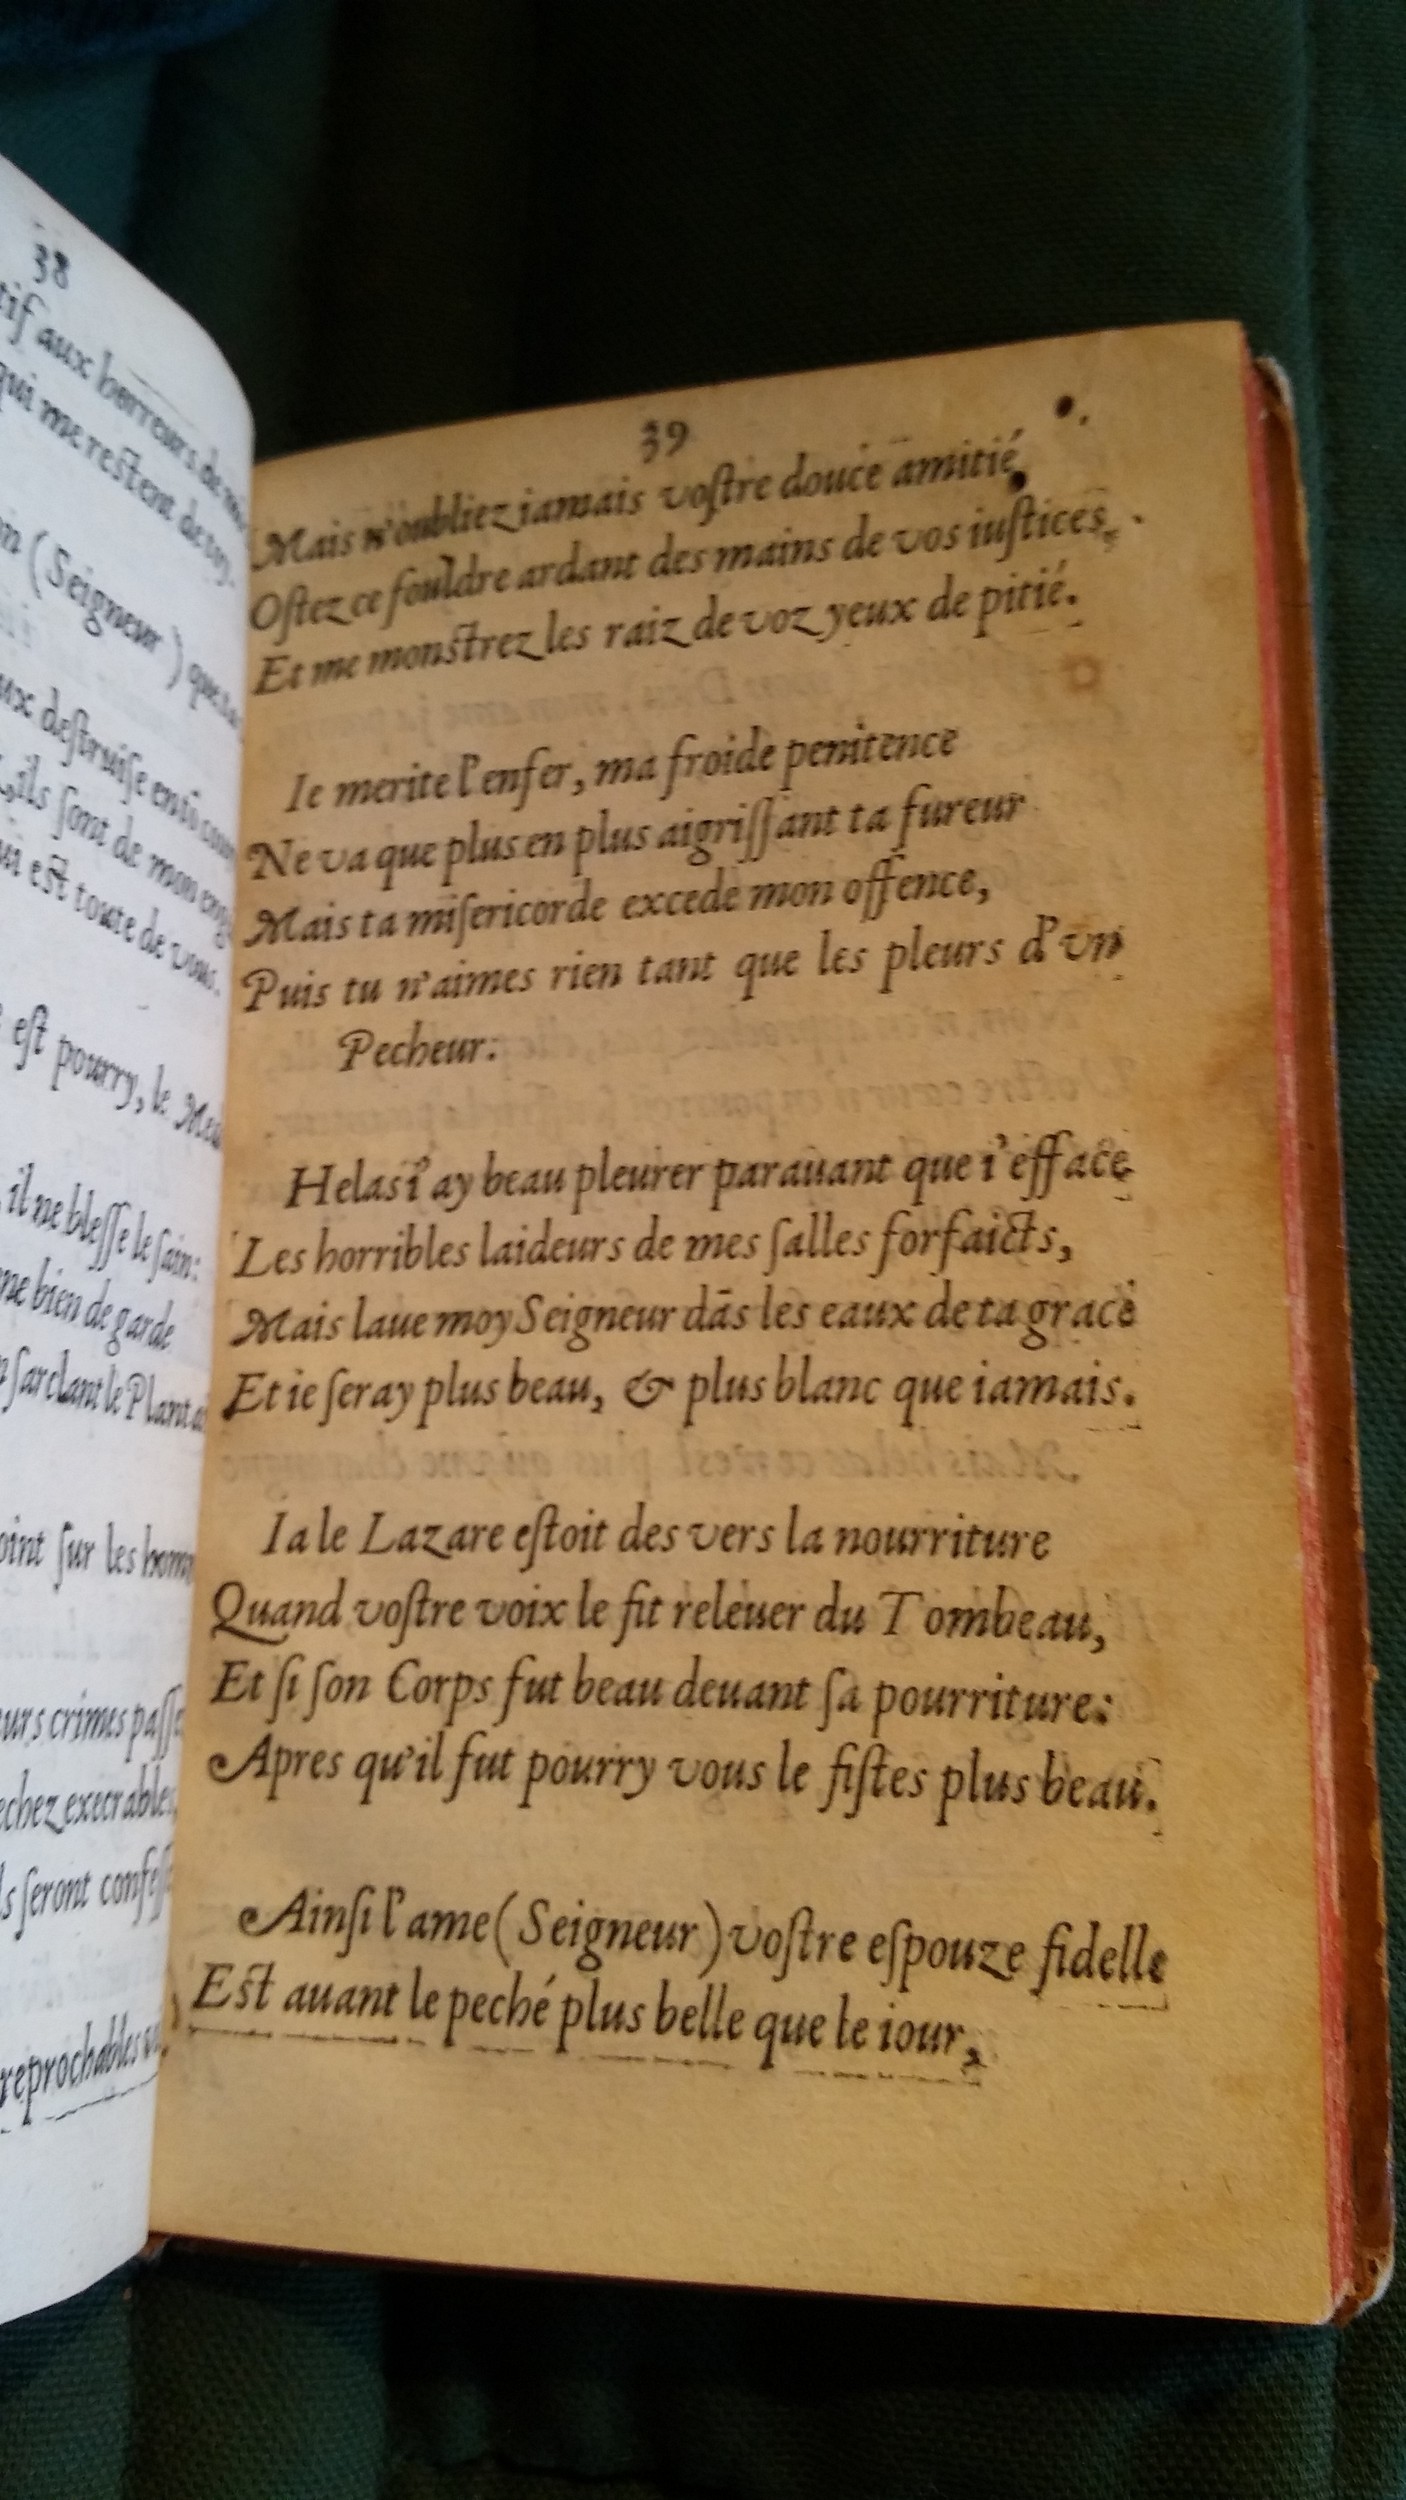 38
aux horreurs de
qui me restent de toy.
(Seigneur) que ta
deſtruiſe
ils ſont de mon
est toute de vous.
eſt pourry, le
il ne bleſſe le ſain:
bien de garde
ſarclant le Plant
ſur les
crimes
execrables,
ſeront
reprochables
39
Mais n'oubliez iamais voſtre douce amitié,
Oſtez ce fouldre ardant des mains de vos iuſtices,
Et me monſtrez les raiz de voz yeux de pitié.
Ie merite l'enfer, ma froide penitence
Ne va que plus en plus aigriſſant ta fureur
Mais ta miſericorde excede mon offence,
Puis tu n'aimes rien tant que les pleurs d'vn
Pecheur:
Helas i'ay beau pleurer parauant que i'efface
Les horribles laideurs de mes ſalles forfaicts,
Mais laue moy Seigneur dãs les eaux de ta grace
Et ie ſeray plus beau, & plus blanc que iamais.
Ia le Lazare eſtoit des vers la nourriture
Quand voſtre voix le fit releuer du Tombeau,
Et ſi ſon Corps fut beau deuant ſa pourriture:
Apres qu'il fut pourry vous le fiſtes plus beau.
Ainſi l'ame (Seigneur) voſtre eſpouze fidelle
Est auant le peché plus belle que le iour,